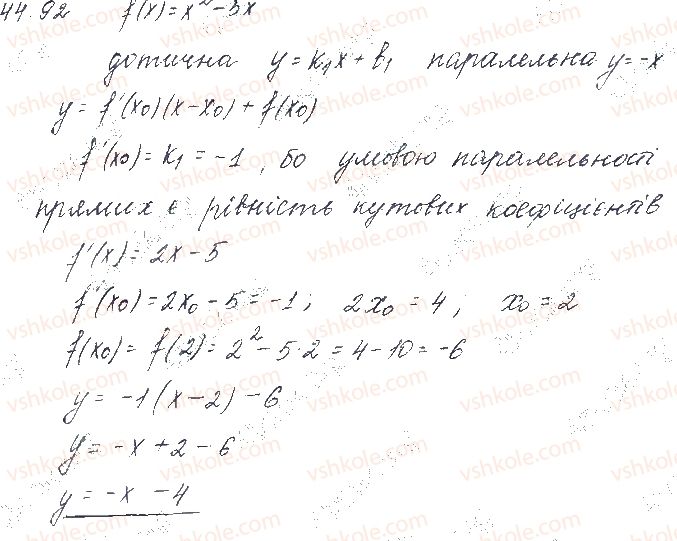 44.92 f(x)=x²-5x
дотична y=k₁x+b₁ паралельна y=-x
y=f'(x₀)(x-x₀)+f(x₀)
f'(x₀)=k₁=-1, бо умовою паралельності
прямих є рівність кутових коефіцієнтів
f'(x)=2x-5
f'(x₀)=2x₀-5=-1; 2x₀=4; x₀=2
f(x₀)=f(2)=2²-5·2=4-10=-6
y=-1(x-2)-6
y=-x+2-6
y=-x-4